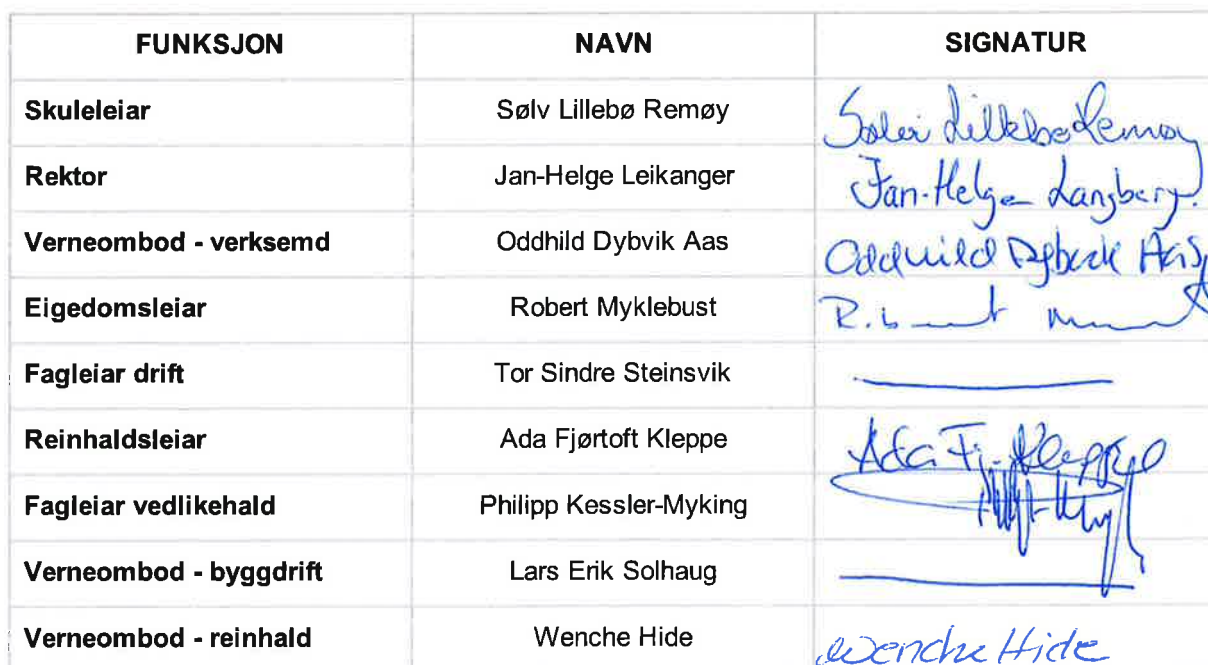 FUNKSJON NAVN SIGNATUR
Skuleleiar Sølv Lillebø Remøy Sølvi Lillebø Remøy
Rektor Jan-Helge Leikanger Jan-Helge
Verneombod - verksemd Oddhild Dybvik Aas Oddhild Dybvik Aas
Eigedomsleiar Robert Myklebust
Fagleiar drift Tor Sindre Steinsvik
Reinhaldsleiar Ada Fjørtoft Kleppe Ada Fj. Kleppe
Fagleiar vedlikehald Philipp Kessler-Myking
Verneombod - byggdrift Lars Erik Solhaug
Verneombod - reinhald Wenche Hide Wenche Hide